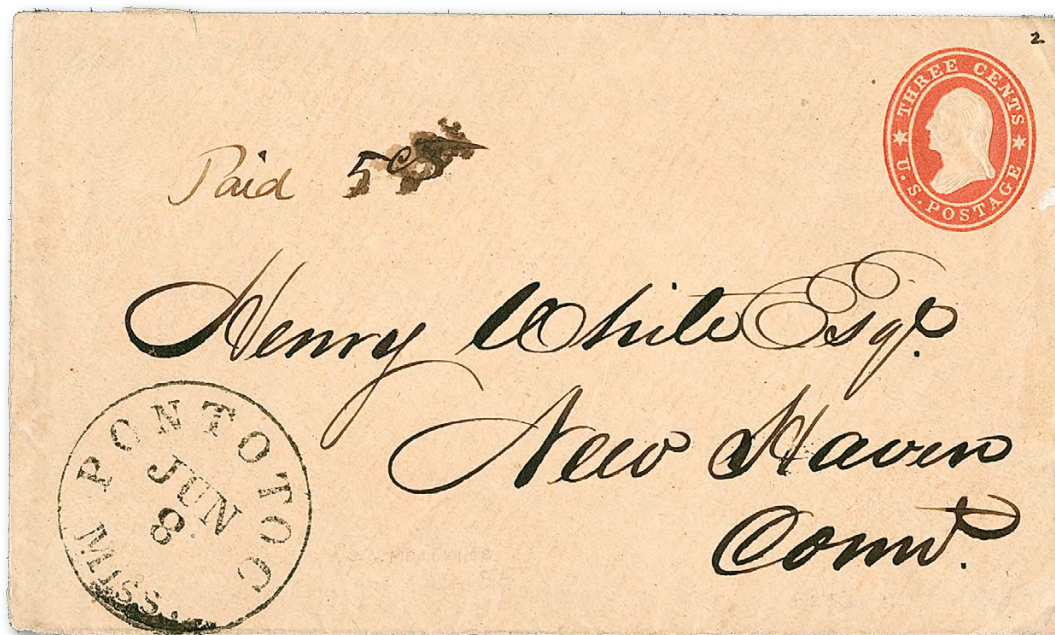 2
THREE CENTS
U.S. POSTAGE
Paid 5cts
Henry White Esqr.
New Haven
Connt.
PONTOTOC
JUN
8.
MISS.